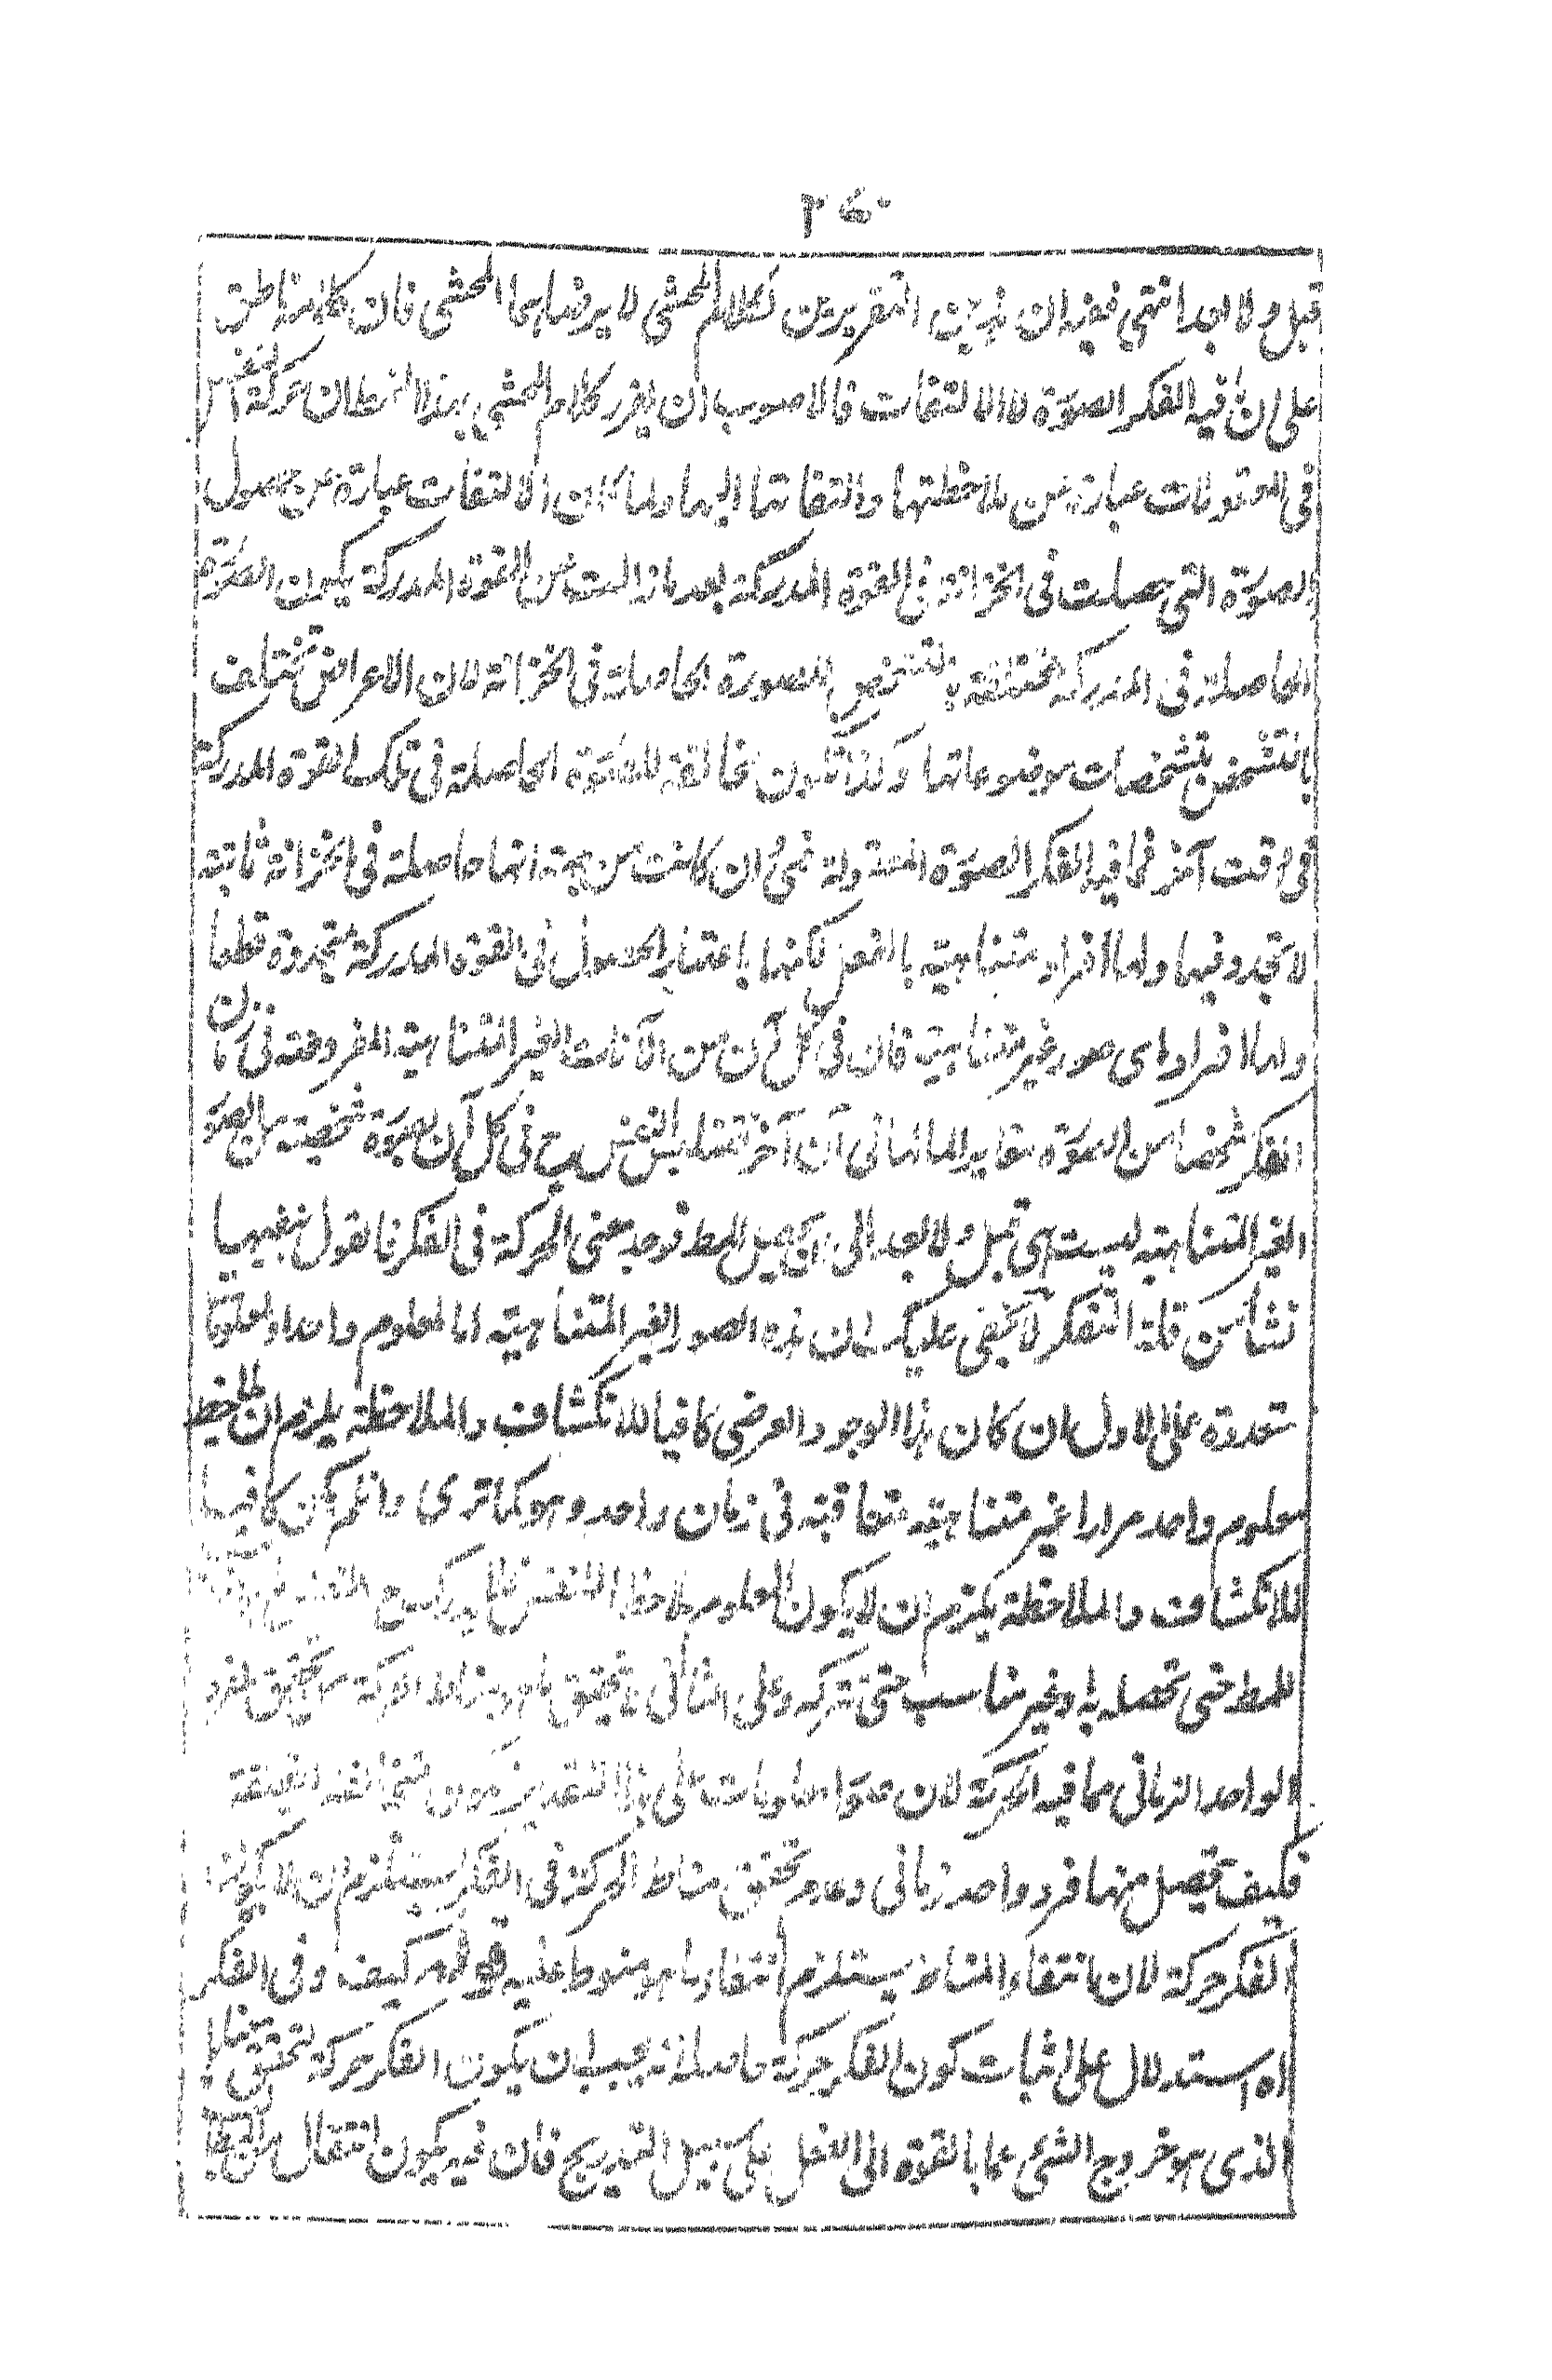 قبل ولا بعد انتهى ففيه ان هذين التقريرين لكلام المحشى لا يرضا بهما المحشى فان كلامه ناطق
على ان ما فيه الفكر الصورة لا الالتفات فالاصوب ان يقرر كلام المحشى بهذا النمط ان حركة النفس
فى المعقولات عبارة عن ملاحظتها والتفاتها اليها ولما كان الالتفات عبارة عن حصول
الصورة التى حصلت فى الخزانة فى القوة المدركة بعد ما زالت عن القوة المدركة يكون الصورة
الحاصلة فى المدركة مختلفة بالتشخص للصورة الحاصلة فى الخزانة لان الاعراض تختلف
بالتشخص بتشخصات موضوعاتها وكذا تكون مخالفة للصورة الحاصلة فى تلك القوة المدركة
فى وقت آخر فما فيه الفكر الصورة المعقولة فهى وان كانت من جهة انها حاصلة فى الخزانة ثابتة
لا تجدد فيها ولها افراد متناهية بالفعل لكنها باعتبار الحصول فى القوة المدركة متجددة قطعا
ولها افراد اى صور غير متناهية فان فى كل آن من الآنات الغير المتناهية المفروضة فى زمان
الفكر شخصا من الصورة مغاير لما فى آن آخر تتلبس النفس ح فى كل آن بصورة شخصية من الصور
الغير المتناهية ليست هى قبل ولا بعد الى ان يحصل المط فوجد معنى الحركة فى الفكر فالقول بنفيها
نشأ من قلة التفكر لا يخفى عليك ان هذه الصور الغير المتناهية اما لمعلوم واحد او لمعلومات
متعددة على الاول ان كان هذا الوجود العرضى كافيا للانكشاف والملاحظة يلزم ان يلاحظ
معلوم واحد مرارا غير متناهية متعاقبة فى زمان واحد وهو كما ترى وان لم يكن كافيا
للانكشاف والملاحظة يلزم ان لا يكون المعلوم ملاحظا للنفس فلا يدرك ح
للمط حتى تحصله او غير مناسب حتى تتركه وعلى الثانى لا تحقيق مناط الحركة تحقيق الفرد
الواحد الزمانى مما فيه الحركة لان صور المعلومات على هذا التقدير متخالفة الحقيقة
فكيف تحصل منها فرد واحد زمانى وعدم تحقق مناط الحركة فى الفكر يستلزم ان لا يكون
الفكر حركة لان انتفاء المناط يستلزم انتفاء ما هو منوط عليه قوله كيف وفى الفكر
اه استدلال على اثبات كون الفكر حركة حاصله انه يجب ان يكون الفكر حركة لتحقق معناها
الذى هو خروج الشىء عما بالقوة الى الفعل على سبيل التدريج فان فيه يكون انتقال النفس